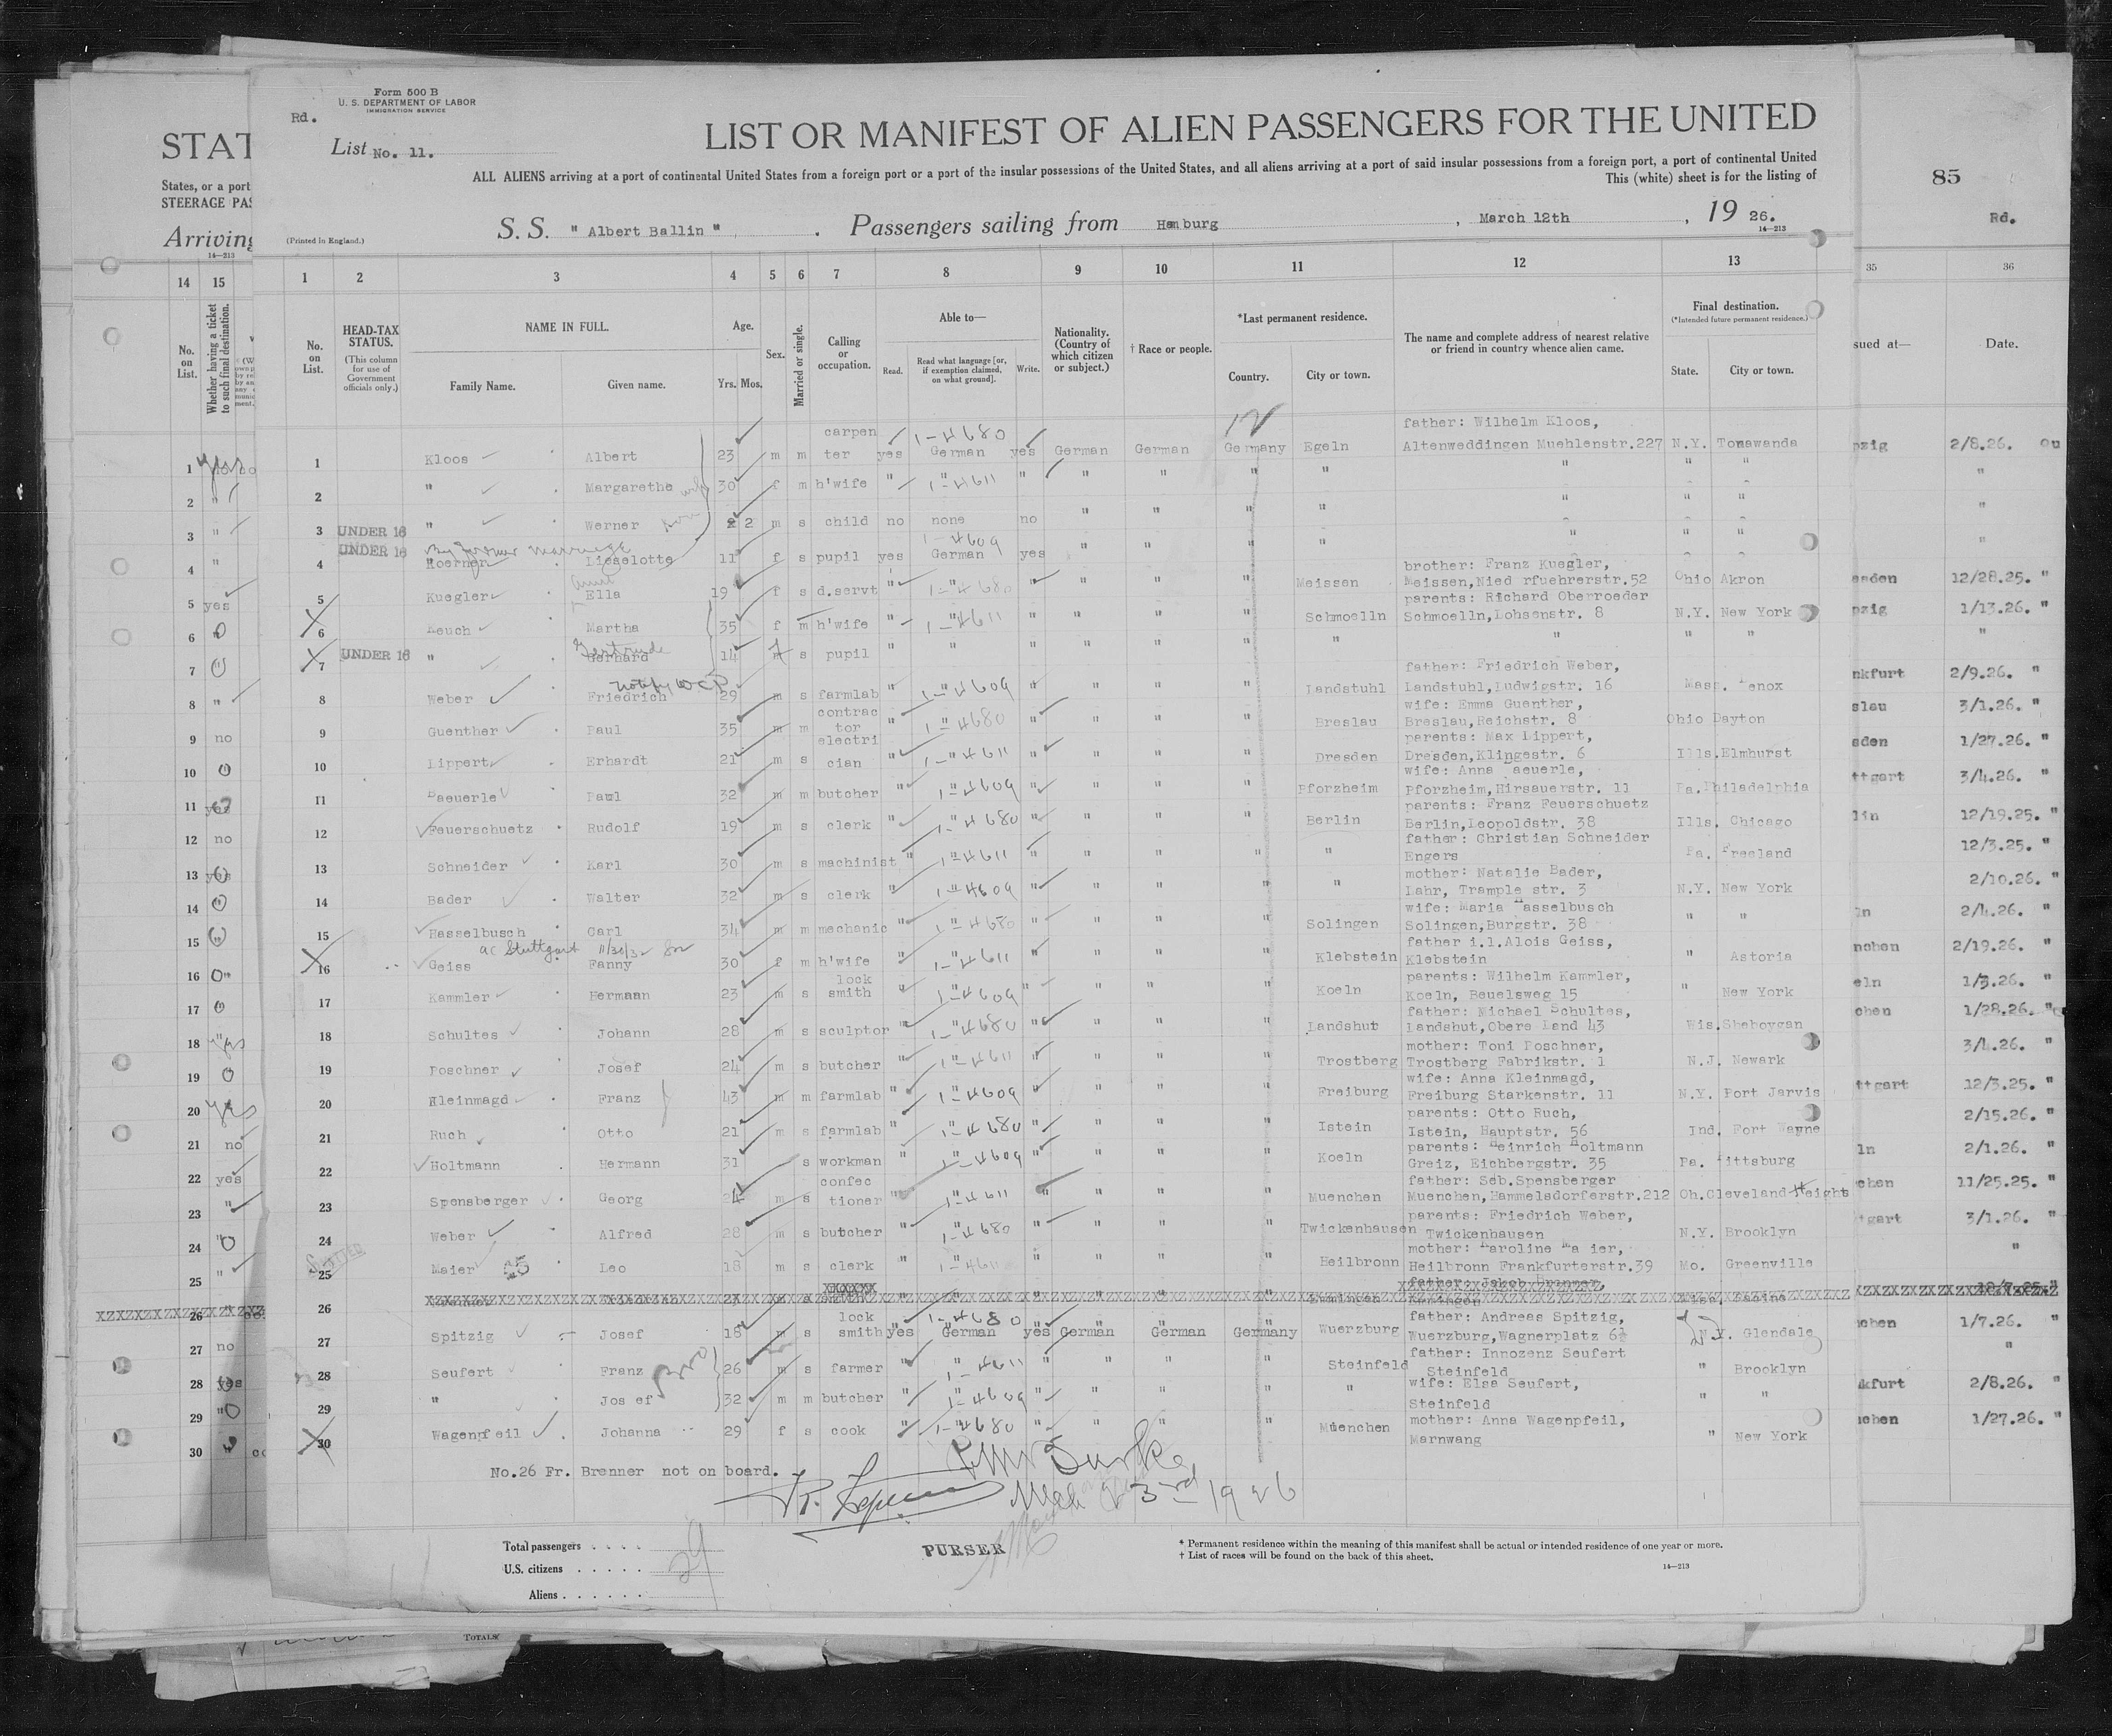 Form 500 B
U. S. DEPARTMENT OF LABOR
IMMIGRATION SERVICE
Rd.
List No. 11.
LIST OR MANIFEST OF ALIEN PASSENGERS FOR THE UNITED
ALL ALIENS arriving at a port of continental United States from a foreign port or a port of the insular possessions of the United States, and all aliens arriving at a port of said insular possessions from a foreign port, a port of continental United
This (white) sheet is for the listing of
S. S. " Albert Ballin " . Passengers sailing from Hamburg , March 12th , 19 26.
(Printed in England.)
14—213
STAT
States, or a port
STEERAGE PAS
Arriving
14—213
85
Rd.
14 15
No. on List.
Whether having a ticket to such final destination.
1 2 3 4 5 6 7 8 9 10 11 12 13
35 36
No. on List.
HEAD-TAX STATUS.
(This column for use of Government officials only.)
NAME IN FULL.
Family Name. Given name.
Age.
Yrs. Mos.
Sex.
Married or single.
Calling or occupation.
Able to—
Read. Read what language [or, if exemption claimed, on what ground]. Write.
Nationality. (Country of which citizen or subject.)
† Race or people.
*Last permanent residence.
Country. City or town.
The name and complete address of nearest relative or friend in country whence alien came.
Final destination.
(*Intended future permanent residence.)
State. City or town.
sued at— Date.
12
father: Wilhelm Kloos,
1 Kloos Albert 23 m m carpen ter yes German 1-4680 yes German German Germany Egeln Altenweddingen Muehlenstr.227 N.Y. Tonawanda pzig 2/8.26.
2 " Margarethe wife 30 f m h'wife " " 1-4611 " " " " " " " " "
3 UNDER 16 " Werner 2 m s child no none no " " " " " " " "
4 UNDER 16 By former marriage Koerner Lieselotte 11 f s pupil yes 1-4609 German yes " " " " " " " "
brother: Franz Kuegler,
5 Kuegler Ella 19 f s d.servt " " 1-4680 " " " " Meissen Meissen,Nied rfuehrerstr.52 Ohio Akron esden 12/28.25. "
parents: Richard Oberroeder
6 Keuch Martha 35 f m h'wife " " 1-4611 " " " " Schmoelln Schmoelln,Lohsenstr. 8 N.Y. New York pzig 1/13.26. "
7 UNDER 16 " Gerhard Gertrude 14 m f s pupil " " " " " " " " " " "
father: Friedrich Weber,
8 Weber Friedrich notify WCP 29 m s farmlab " " 1-4609 " " " " Landstuhl Landstuhl,Ludwigstr. 16 Mass. Lenox nkfurt 2/9.26. "
wife: Emma Guenther,
9 Guenther Paul 35 m m contrac tor " " 1-4680 " " " " Breslau Breslau,Reichstr. 8 Ohio Dayton slau 3/1.26. "
parents: Max Lippert,
10 Lippert Erhardt 21 m s electri cian " " 1-4611 " " " " Dresden Dresden,Klingestr. 6 Ills. Elmhurst sden 1/27.26. "
wife: Anna Baeuerle,
11 Baeuerle Paul 32 m m butcher " " 1-4609 " " " " Pforzheim Pforzheim,Hirsauerstr. 11 Pa. Philadelphia ttgart 3/4.26. "
parents: Franz Feuerschuetz
12 Feuerschuetz Rudolf 19 m s clerk " " 1-4680 " " " " Berlin Berlin,Leopoldstr. 38 Ills. Chicago lin 12/19.25. "
father: Christian Schneider
13 Schneider Karl 30 m s machinist " " 1-4611 " " " " " Engers Pa. Freeland 12/3.25. "
mother: Natalie Bader,
14 Bader Walter 32 m s clerk " " 1-4609 " " " " " Lahr, Trample str. 3 N.Y. New York 2/10.26. "
wife: Maria Hasselbusch
15 Hasselbusch Carl 34 m m mechanic " " 1-4680 " " " " Solingen Solingen,Burgstr. 38 " " ln 2/4.26. "
ac Stuttgart 11/30/32
father i.l.Alois Geiss,
16 Geiss Fanny 30 f m h'wife " " 1-4611 " " " " Klebstein Klebstein " Astoria nchen 2/19.26. "
parents: Wilhelm Kammler,
17 Kammler Hermann 23 m s lock smith " " 1-4609 " " " " Koeln Koeln, Beuelsweg 15 " New York eln 1/3.26. "
father: Michael Schultes,
18 Schultes Johann 28 m s sculptor " " 1-4680 " " " " Landshut Landshut,Obere Land 43 Wis. Sheboygan chen 1/28.26. "
mother: Toni Poschner,
19 Poschner Josef 24 m s butcher " " 1-4611 " " " " Trostberg Trostberg Fabrikstr. 1 N.J. Newark 3/4.26. "
wife: Anna Kleinmagd,
20 Kleinmagd Franz 43 m m farmlab " " 1-4609 " " " " Freiburg Freiburg Starkenstr. 11 N.Y. Port Jarvis ttgart 12/3.25. "
parents: Otto Ruch,
21 Ruch Otto 21 m s farmlab " " 1-4680 " " " " Istein Istein, Hauptstr. 56 Ind. Fort Wayne 2/15.26. "
parents: Heinrich Holtmann
22 Holtmann Hermann 31 s workman " " 1-4609 " " " " Koeln Greiz, Eichbergstr. 35 Pa. Pittsburg ln 2/1.26. "
father: Seb.Spensberger
23 Spensberger Georg 24 m s confec tioner " " 1-4611 " " " " Muenchen Muenchen,Hammelsdorferstr.212 Oh. Cleveland Heights chen 11/25.25. "
parents: Friedrich Weber,
24 Weber Alfred 28 m s butcher " " 1-4680 " " " " Twickenhausen Twickenhausen N.Y. Brooklyn tgart 3/1.26. "
mother: Karoline Ma ier,
25 Maier Leo 18 m s clerk " " 1-4611 " " " " Heilbronn Heilbronn Frankfurterstr.39 Mo. Greenville "
father: Jakob Brenner
26
father: Andreas Spitzig,
27 Spitzig Josef 18 m s lock smith yes German 1-4680 yes German German Germany Wuerzburg Wuerzburg,Wagnerplatz 6½ N.Y. Glendale chen 1/7.26. "
father: Innozenz Seufert
28 Seufert Franz bro 26 m s farmer " " 1-4611 " " " " Steinfeld Steinfeld " Brooklyn "
wife: Elsa Seufert,
29 " Jos ef 32 m m butcher " " 1-4609 " " " " " Steinfeld " " kfurt 2/8.26. "
mother: Anna Wagenpfeil,
30 Wagenpfeil Johanna 29 f s cook " " 1-4680 " " " " Muenchen Marnwang " New York chen 1/27.26. "
No.26 Fr. Brenner not on board.
Burke
Mch 23rd 1926
Total passengers . . . .
U.S. citizens . . . . . 29
Aliens . . . . . .
PURSER
* Permanent residence within the meaning of this manifest shall be actual or intended residence of one year or more.
† List of races will be found on the back of this sheet.
14—213
TOTALS